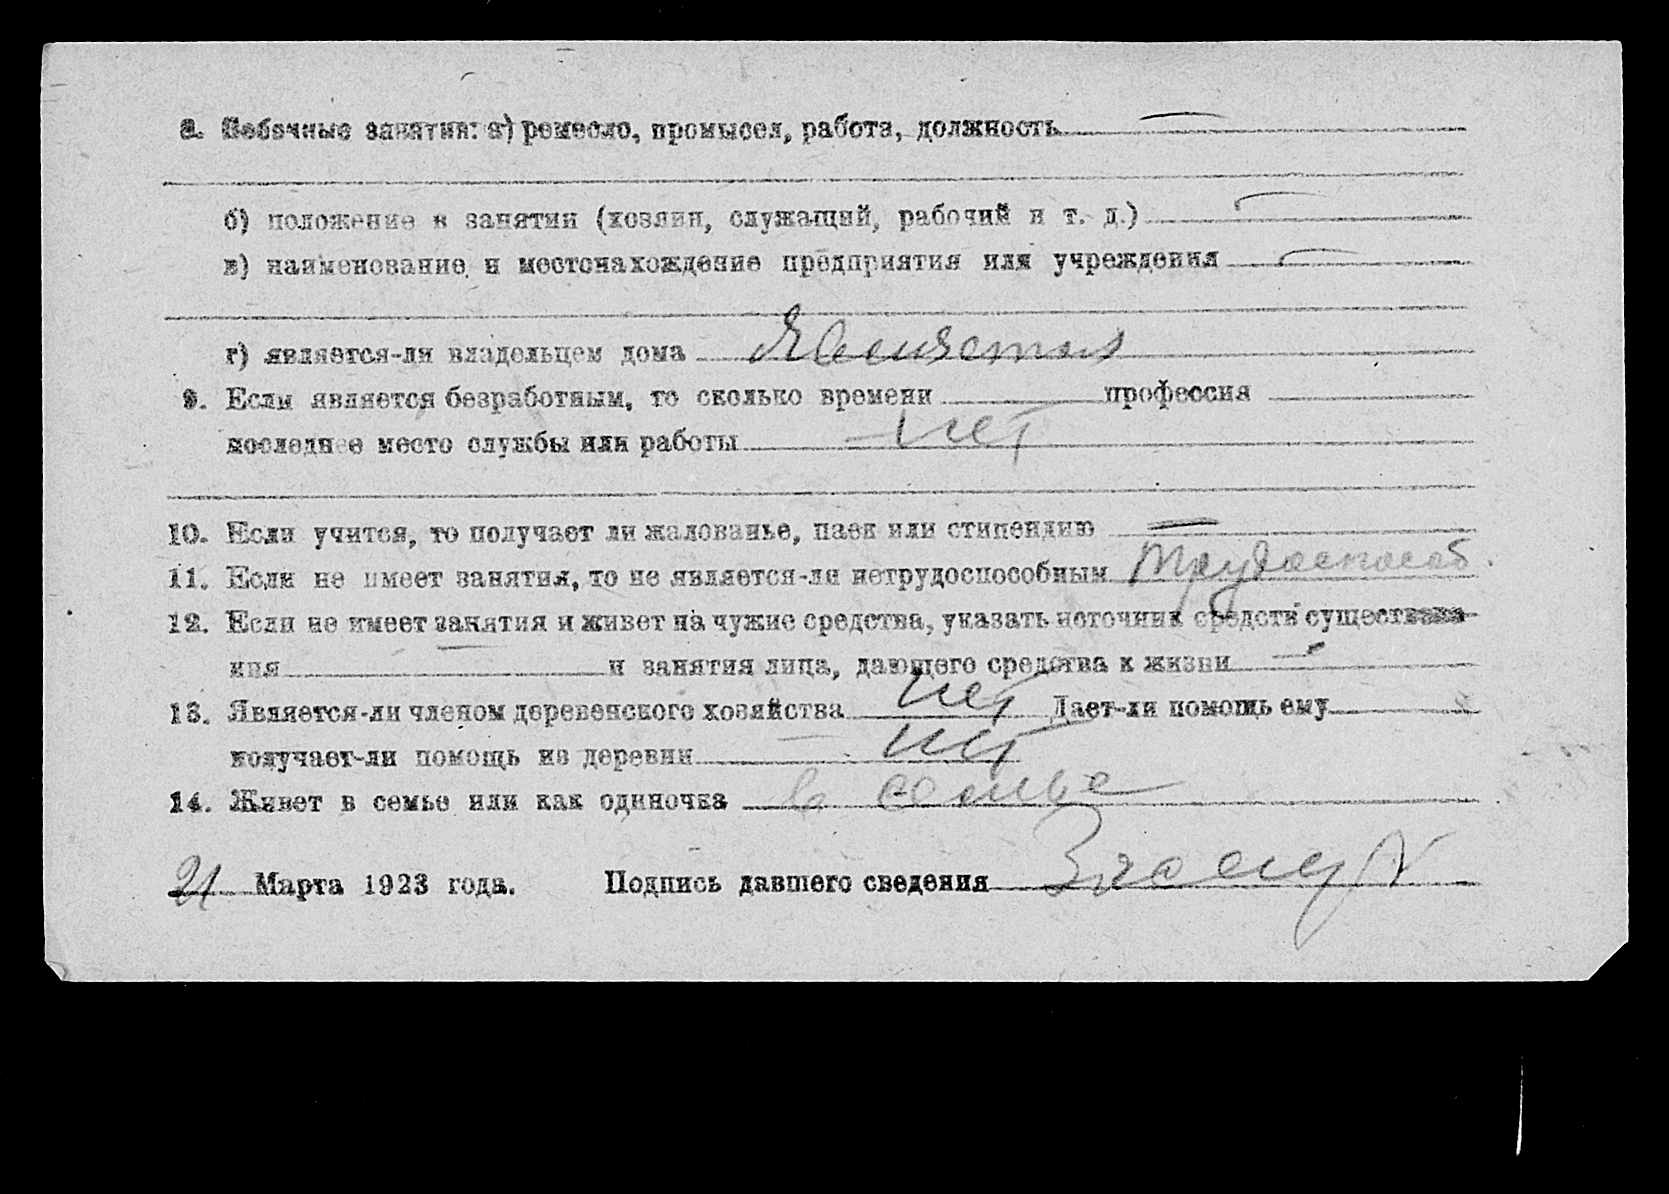 8. Побочные занятия: а) ремесло, промысел, работа, должность —
б) положение в занятии (хозяин, служащий, рабочий и т. д.) —
в) наименование и местонахождение предприятия или учреждения —
г) является-ли владельцем дома
9. Если является безработным, то сколько времени профессия
последнее место службы или работы нет
10. Если учится, то получает ли жалованье, паек или стипендию —
11. Если не имеет занятия, то не является-ли нетрудоспособным Трудоспособ.
12. Если не имеет занятия и живет на чужие средства, указать источник средств существова
ния — и занятия лица, дающего средства к жизни —
13. Является-ли членом деревенского хозяйства нет Дает-ли помощь ему
получает-ли помощь из деревни нет
14. Живет в семье или как одиночка в семье
21 Марта 1923 года. Подпись давшего сведения